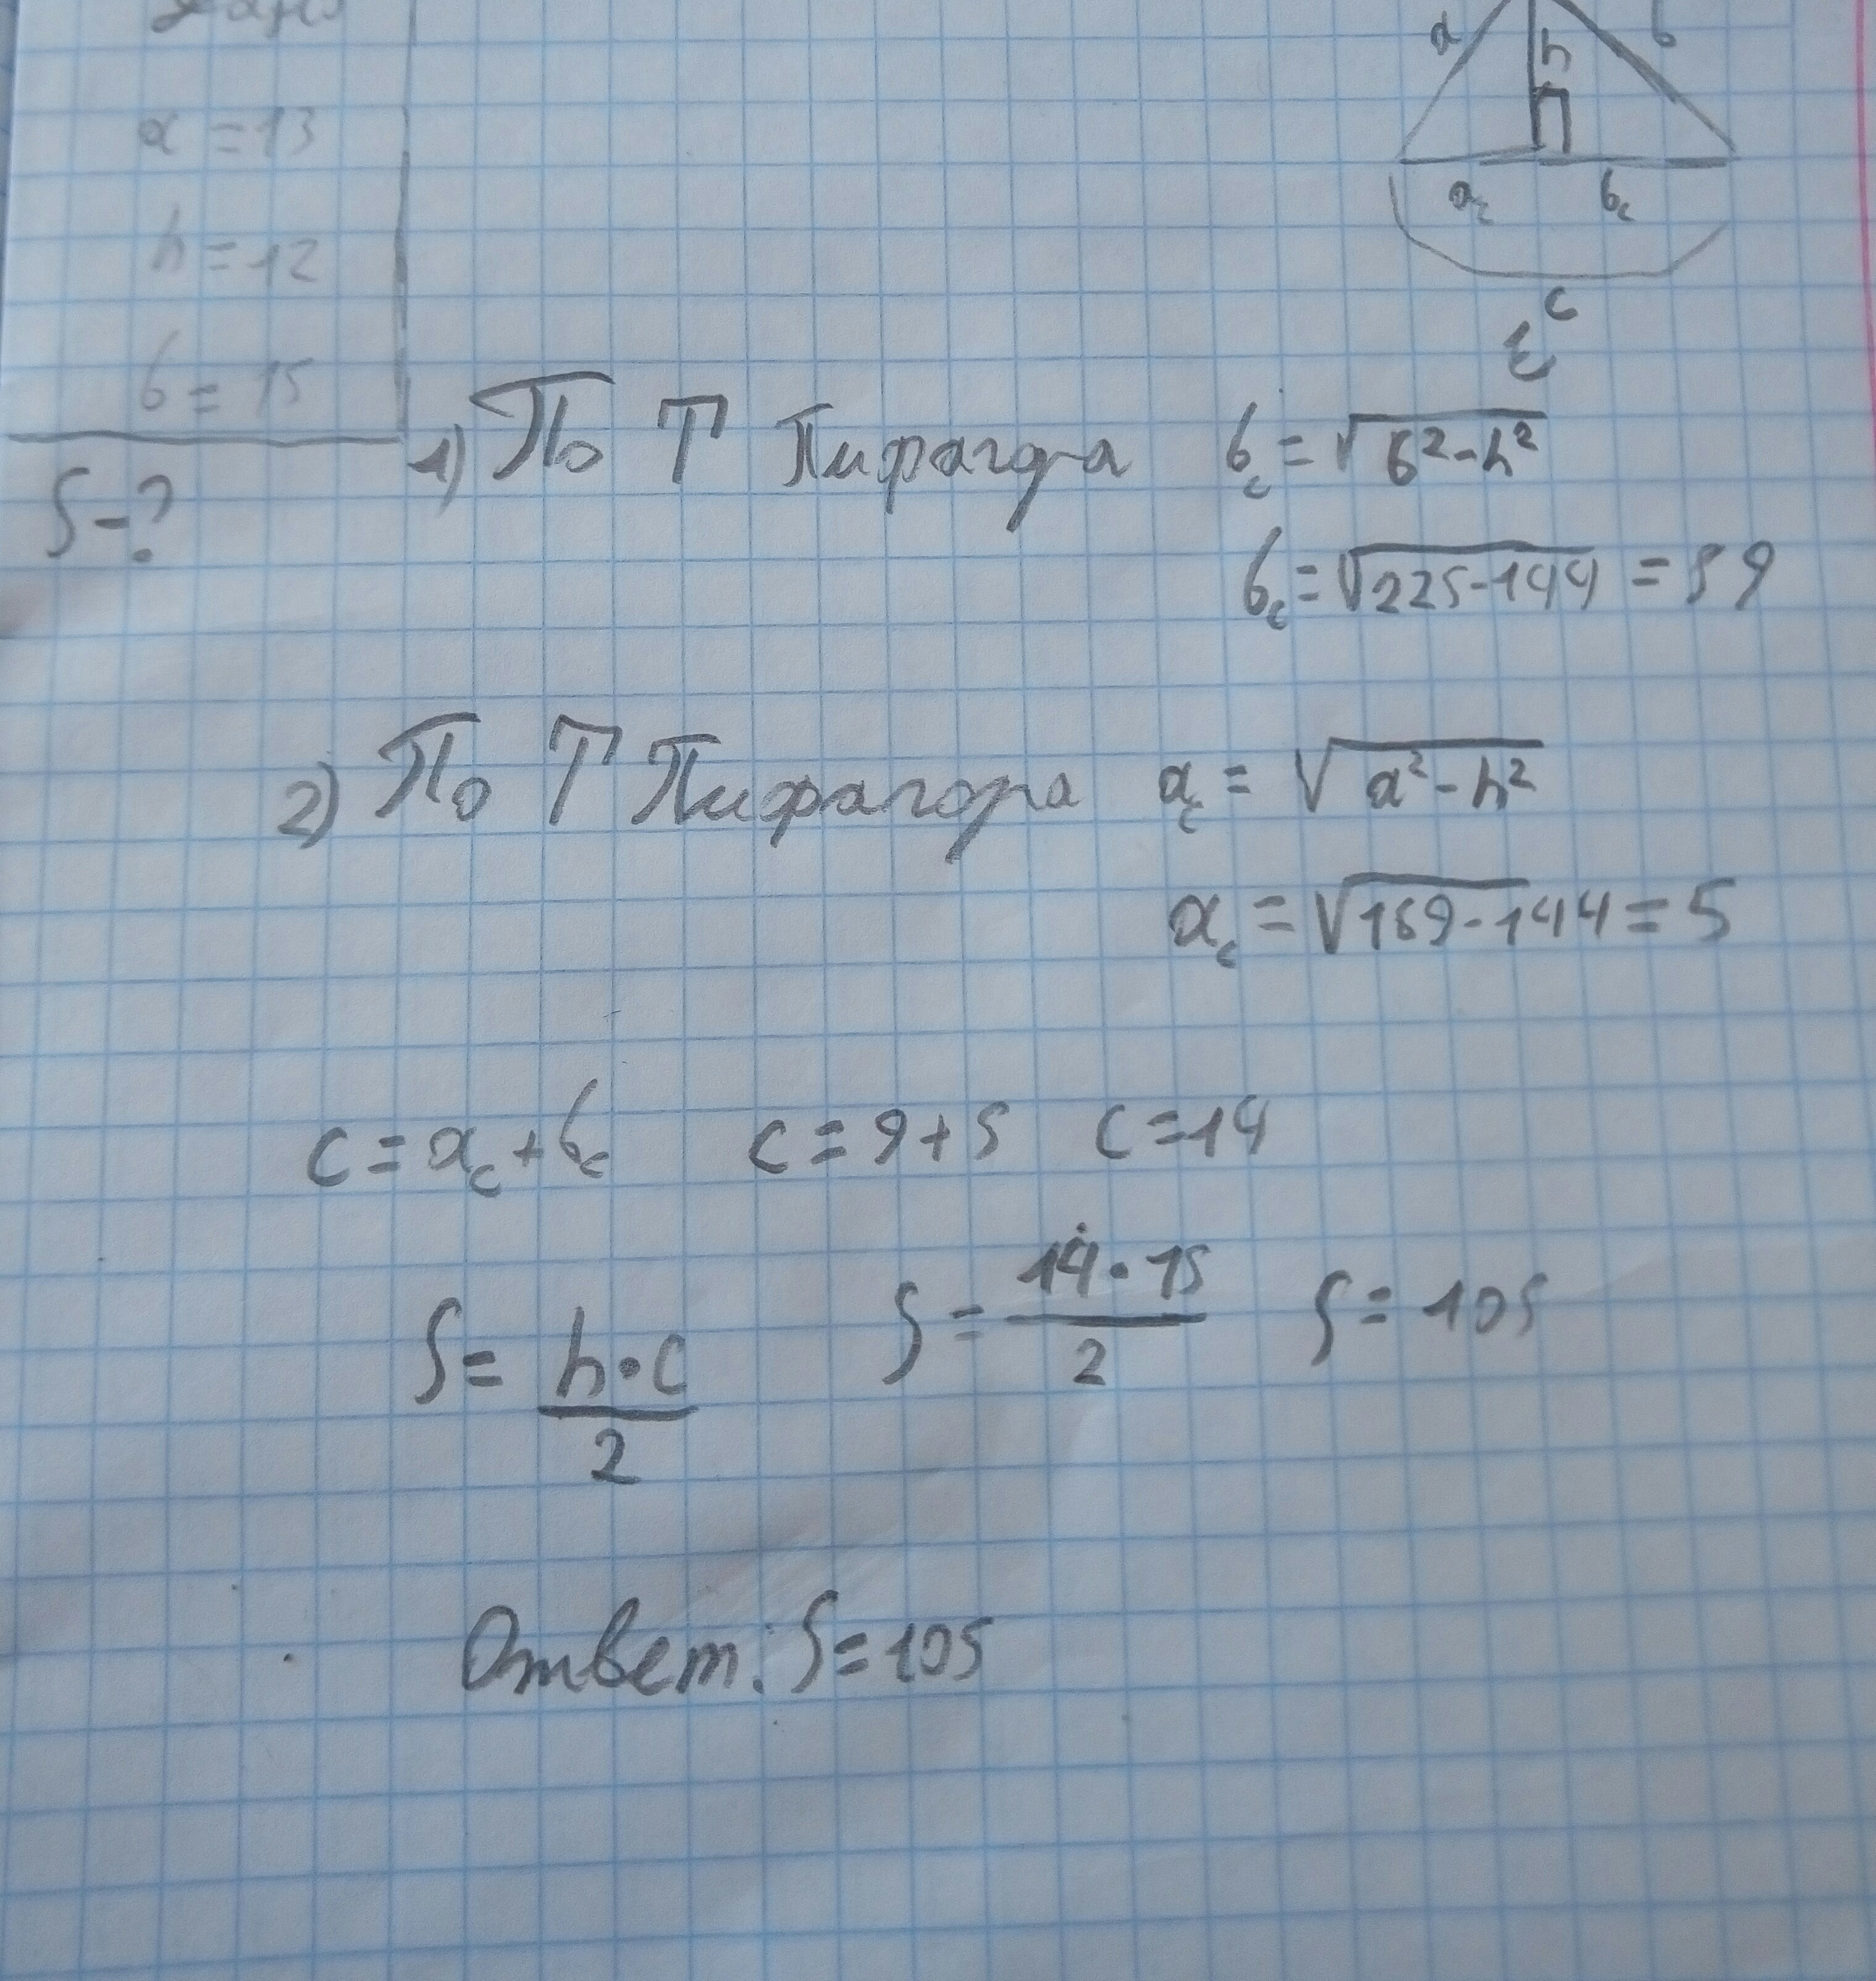 Дано
a = 13
h = 12
b = 15
S - ?
a
h
b
a_c
b_c
c
1) По Т Пифагора b_c = √b² - h²
b_c = √225 - 144 = 9
2) По Т Пифагора a_c = √a² - h²
a_c = √169 - 144 = 5
c = a_c + b_c c = 9 + 5 c = 14
S = h · c / 2 S = 14 · 15 / 2 S = 105
Ответ: S = 105